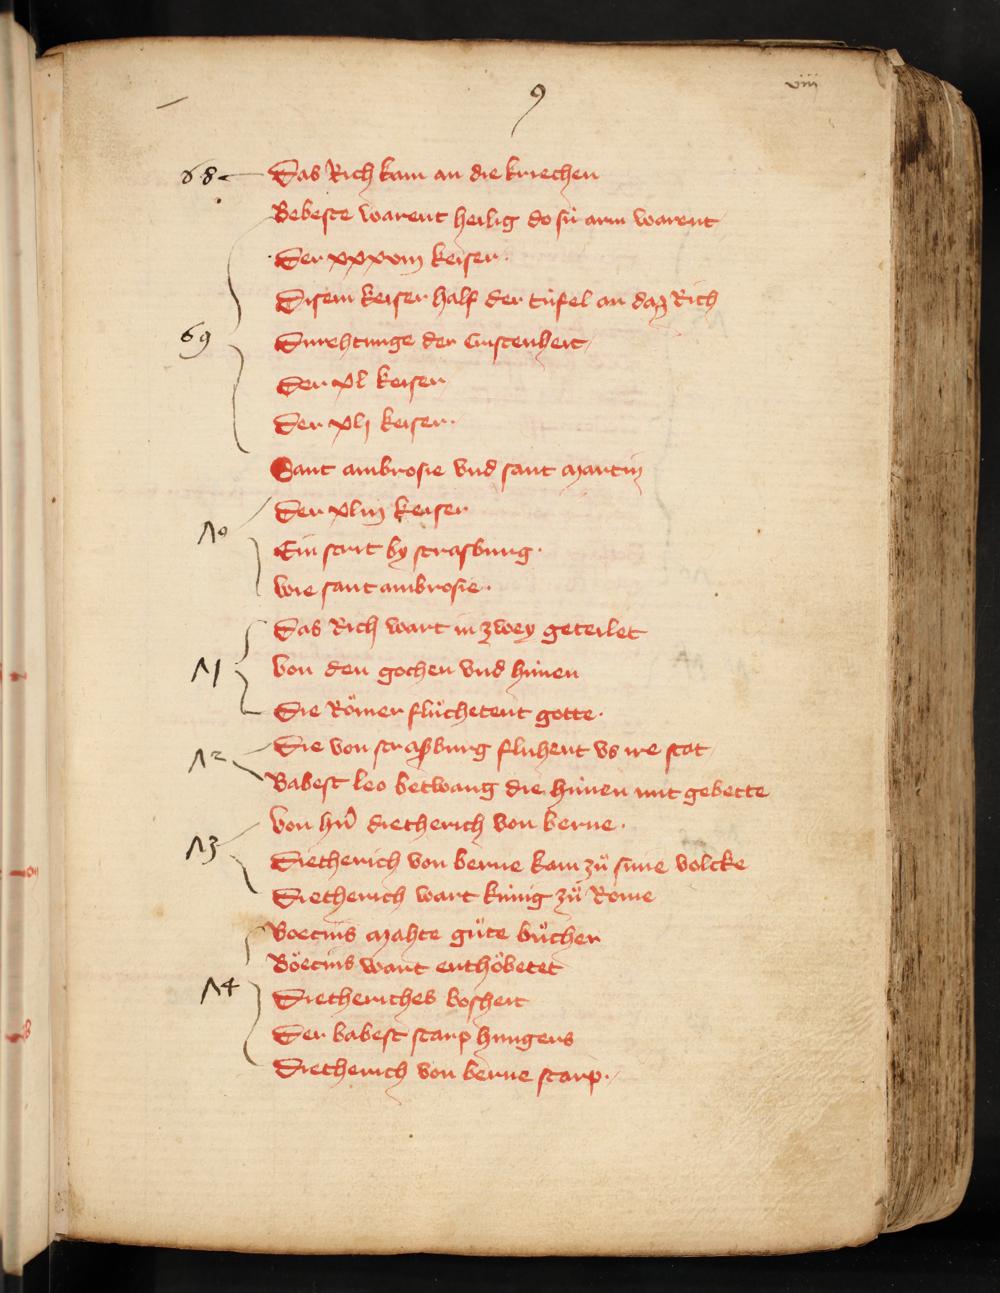 9
viij
68 Das Rich kam an die kriechen
Bebeste warent heilig do sü arm warent
Der xxxviij keiser
Disem keiser half der tüfel an daz Rich
69 Durehtunge der Cristenheit
Der xl keiser
Der xlj keiser
Sant ambrosie vnd sant martin
Der xliij keiser
70 Ein strit by strasburg
Wie sant ambrosie
Das Rich wart in zwey geteilet
71 Von den gothen vnd hünen
Die Römer flüchetent gotte
Die von straßburg fluhent vs ire stat
72 Babest leo betwang die hünen mit gebette
Von her dietherich von berne
73 Dietherich von berne kam zů sime volcke
Dietherich wart künig zů Rome
Boecius mahte gůte bůcher
Böecius wart enthöbetet
74 Dietheriches bosheit
Der babest starp hungers
Dietherich von berne starp